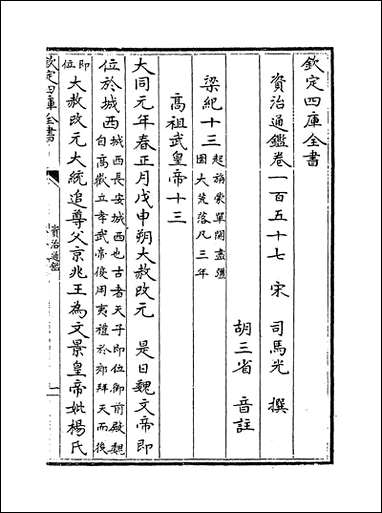 欽定四庫全書
資治通鑑卷一百五十七　宋　司馬光　撰
胡三省　音註
梁紀十三起旃蒙單閼盡彊圉大荒落凡三年
高祖武皇帝十三
大同元年春正月戊申朔大赦改元　是日魏文帝即
位於城西城西長安城西也古者天子即位御前殿魏自高歡立孝武帝復用夷禮於郊拜天而後即位
大赦改元大統追尊父京兆王為文景皇帝妣楊氏
欽定四庫全書
資治通鑑